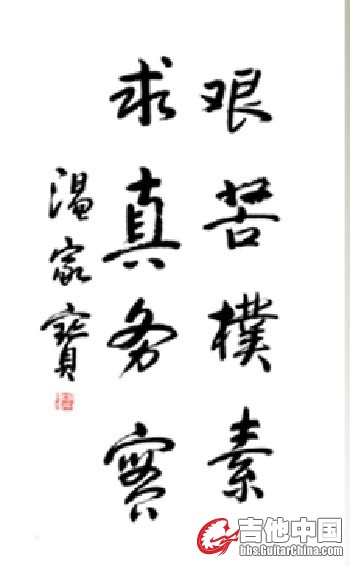 艰苦樸素
求真务實
温家寶
吉他中国
bbs.GuitarChina.com